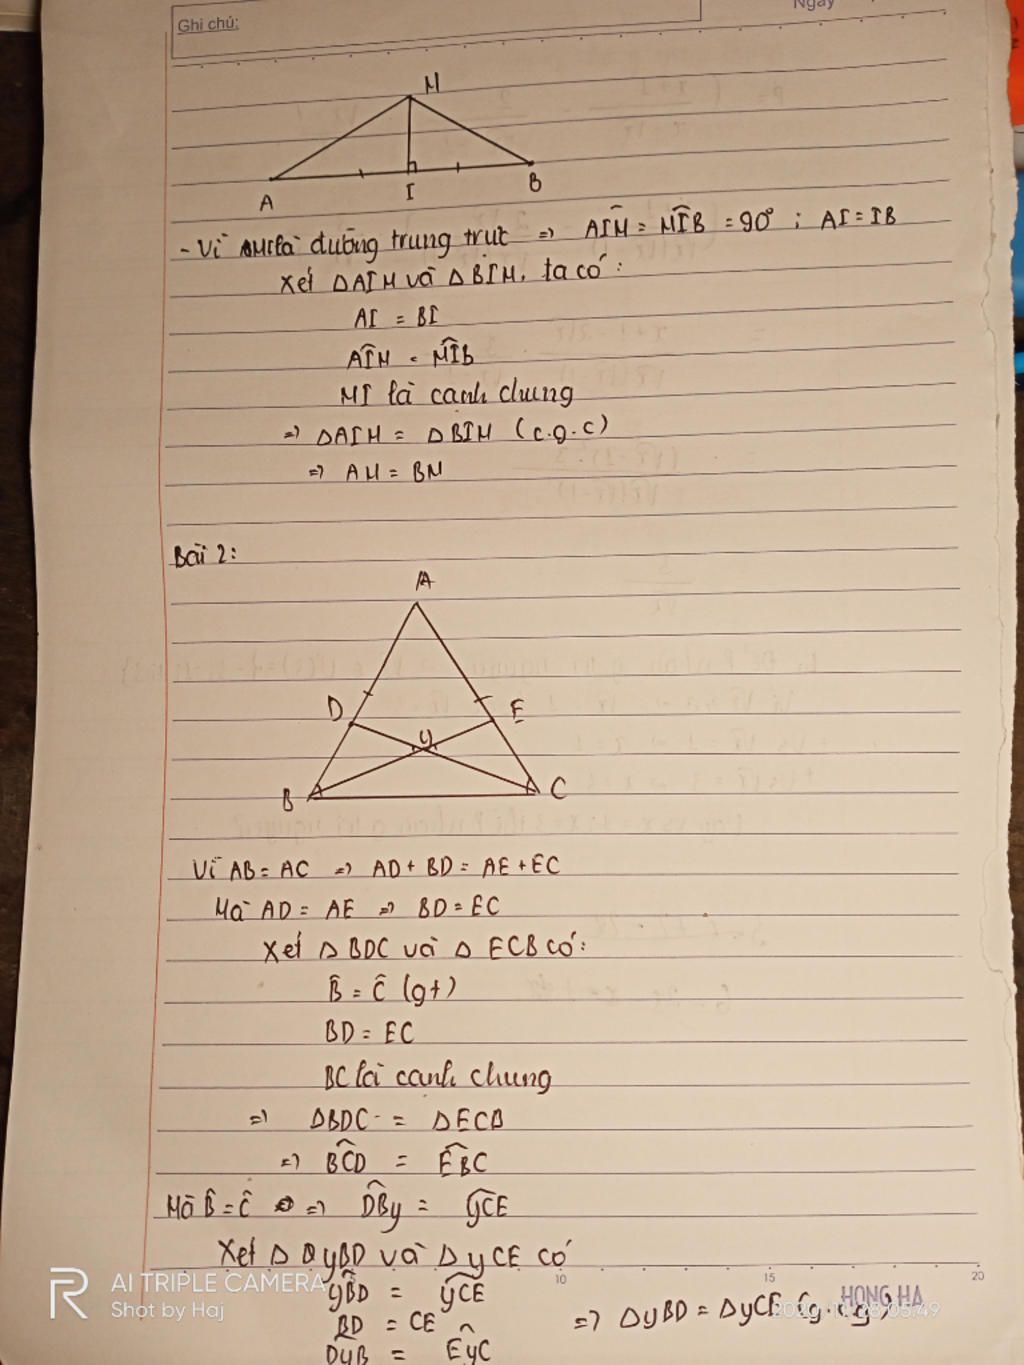 Ghi chú:
Ngày
M
A
I
B
- Vì MI là đường trung trực => AIM = MIB = 90° ; AI = IB
Xét ΔAIM và ΔBIM, ta có:
AI = BI
AIM = MIB
MI là cạnh chung
=> ΔAIM = ΔBIM (c.g.c)
=> AM = BM
Bài 2:
A
D
E
y
B
C
Vì AB = AC => AD + BD = AE + EC
Mà AD = AE => BD = EC
Xét Δ BDC và Δ ECB có:
B̂ = Ĉ (gt)
BD = EC
BC là cạnh chung
=> ΔBDC = ΔECB
=> BCD = EBC
Mà B̂ = Ĉ => DBy = yCE
Xét Δ yBD và Δ yCE có
yBD = yCE
BD = CE
DyB = EyC
=> ΔyBD = ΔyCE
AI TRIPLE CAMERA
Shot by Haj
10
15
20
HONG HA